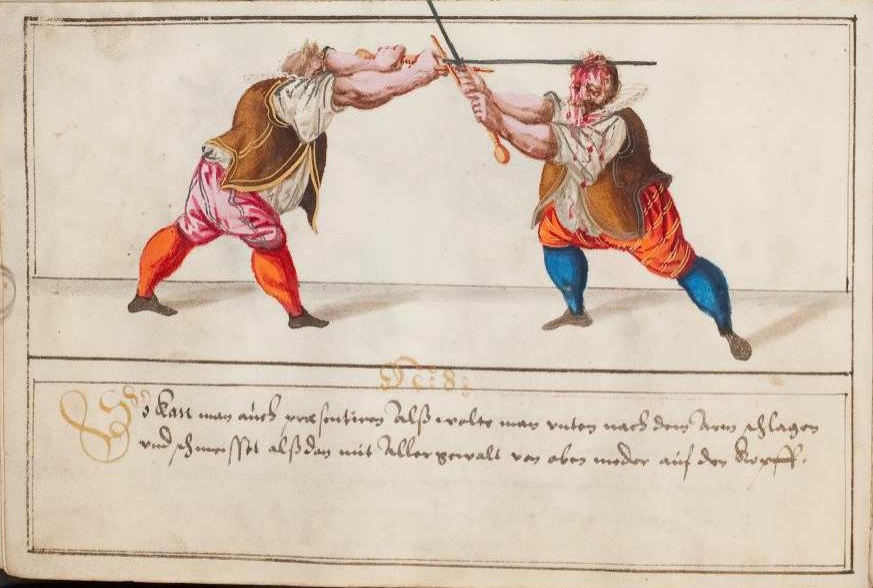 N: 8:
Es kan man auch præsentiren Alß wolte man unten nach dem Arm schlagen
und schmeisset alßdan mit Aller gewalt von oben nieder auf den Kopff.